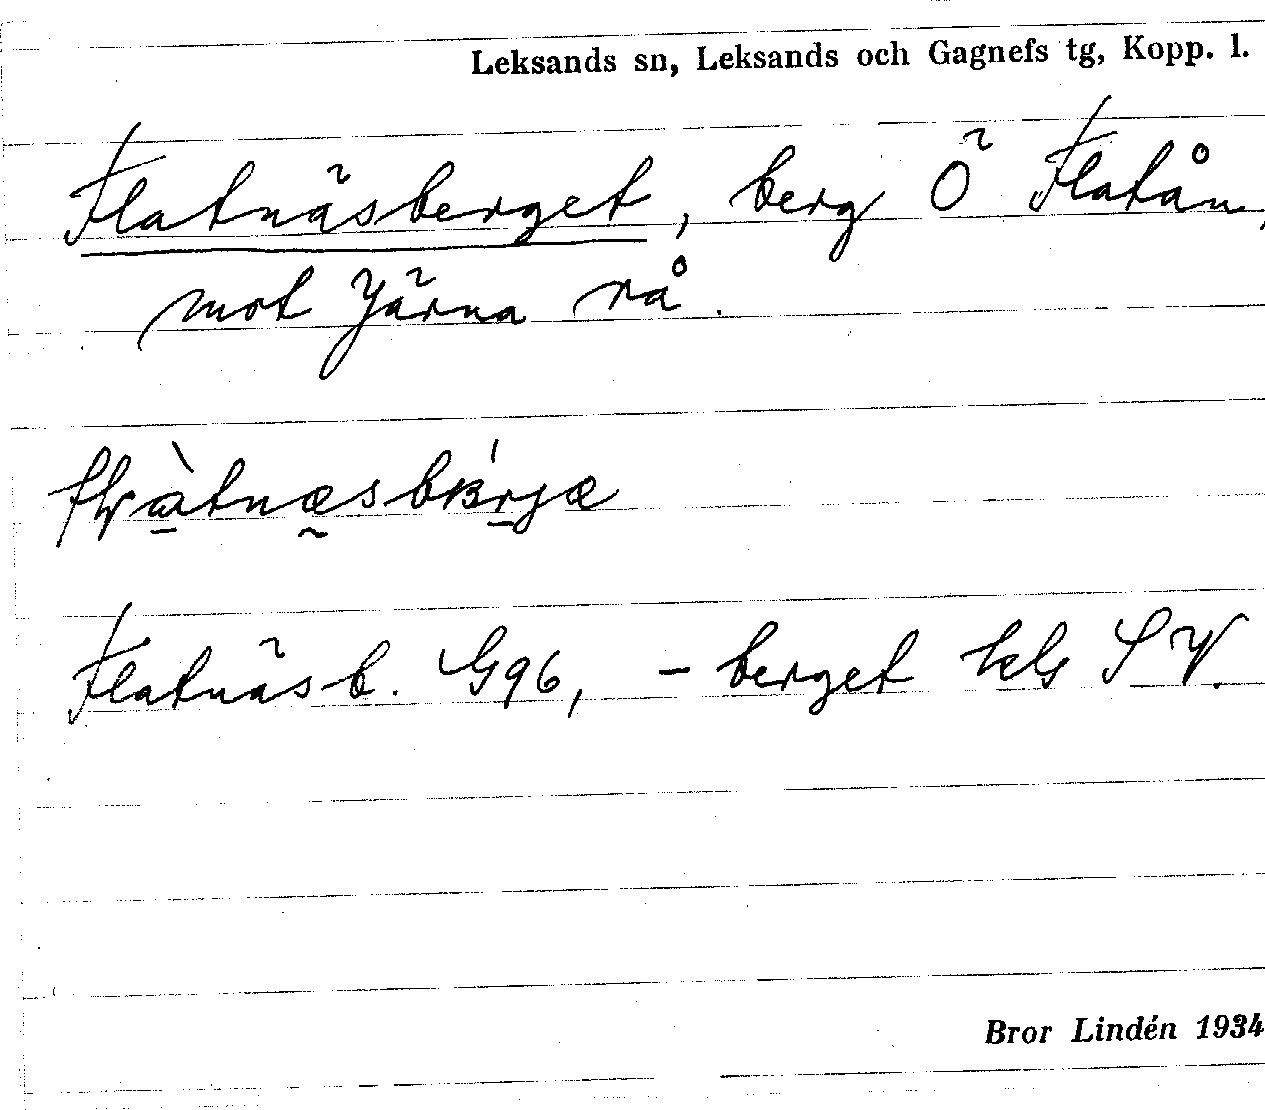 Leksands sn, Leksands och Gagnefs tg, Kopp. l.
Flatnäsberget, berg Ö Flatån,
mot Järna rå.
Flatnäsb. G96, -berget kls SV.
Bror Lindén 1934